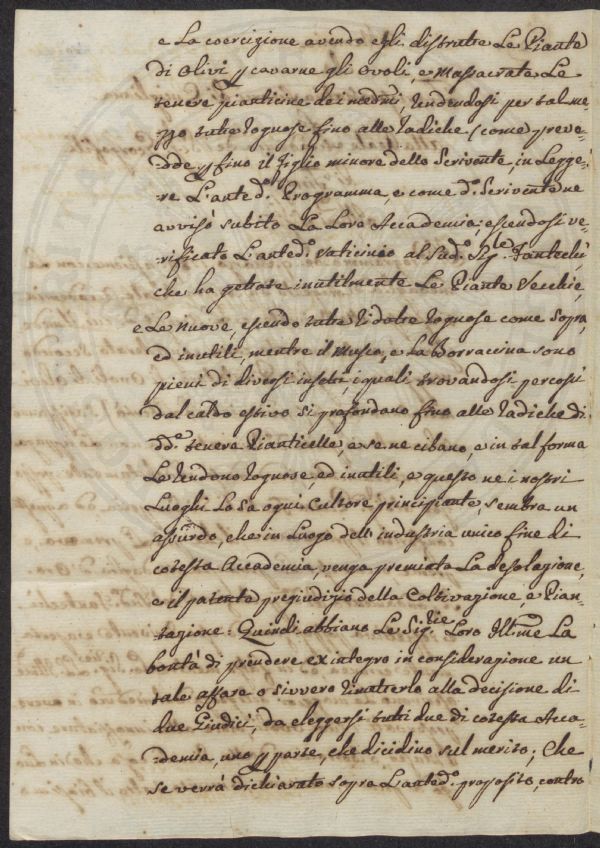 e La coercizione avendo egli distrutte Le Piante
di Olivi p cavarne gli Ovoli, e Massacrate Le
tenere pianticine dei medmi, Rendendosi per tal me-
zzo tutte rognose fino alle Radiche (come preve-
dde p fino il figlio minore dello Scrivente, in Legge-
re L'anted.º Programma, e come d.º Scrivente ne
avvisò subito La Loro Accademia; essendosi ve-
rificato L'anted.º vaticinio al Sud.º Sig.le
che ha gettate inutilmente Le Piante Vecchie,
e Le Nuove, essendo tutte Ridotte rognose come Sopra,
ed inutili, mentre il Musco, e La Borraccina sono
pieni di diversi insetti, i quali trovandosi percossi
dal caldo estivo si profondano fino alle Radiche di
dd.e tenere Pianticelle, e se ne cibano, e in tal forma
Le Rendono rognose, ed inutili, e questo ne i nostri
Luoghi Lo sa ogni Cultore principiante, sembra un
assurdo, che in Luogo dell' industria unico fine di
cotesta Accademia, venga premiata La desolazione,
e il patente pregiudizio della Coltivazione, e Pian-
tazione: Quindi abbiano Le Sig.rie Loro Ill.me La
bontà di prendere ex integro in considerazione un
tale affare o sivvero Rimetterlo alla decisione di
due Giudici, da eleggersi tutti due di cotesta Acca-
demia, uno p parte, che dicidino sul merito; Che
se verrà dichiarato sopra L'anted.º proposito, contro